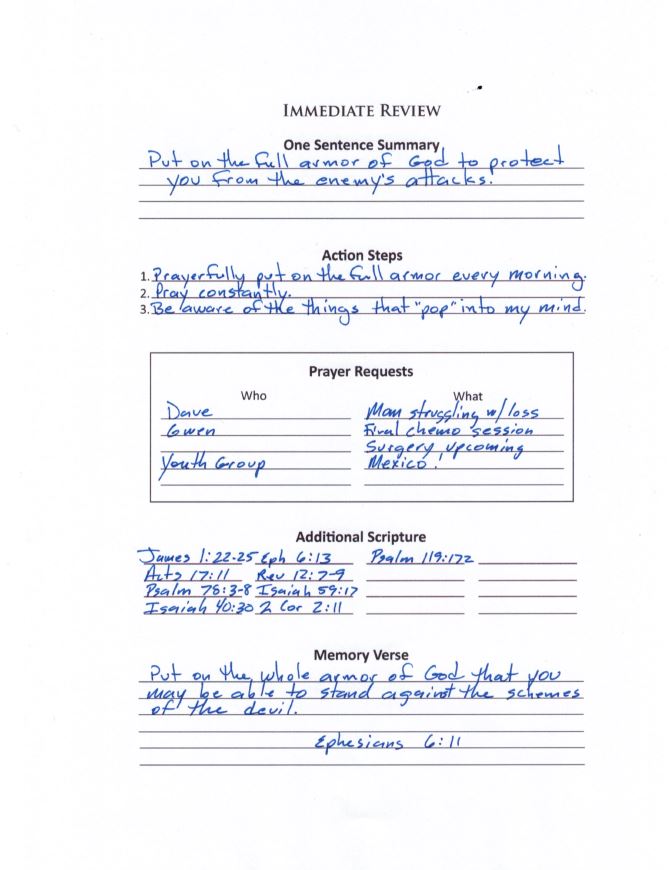 IMMEDIATE REVIEW
One Sentence Summary
Put on the full armor of God to protect
you from the enemy's attacks.
Action Steps
1. Prayerfully put on the full armor every morning.
2. Pray constantly.
3. Be aware of the things that "pop" into my mind.
Prayer Requests
Who What
Dave Mom struggling w/ loss
Gwen Final chemo session
Surgery upcoming
Youth Group Mexico!
Additional Scripture
James 1:22-25 Eph 6:13 Psalm 119:172
Acts 17:11 Rev 12:7-9
Psalm 78:3-8 Isaiah 59:17
Isaiah 40:30 2 Cor 2:11
Memory Verse
Put on the whole armor of God that you
may be able to stand against the schemes
of the devil.
Ephesians 6:11